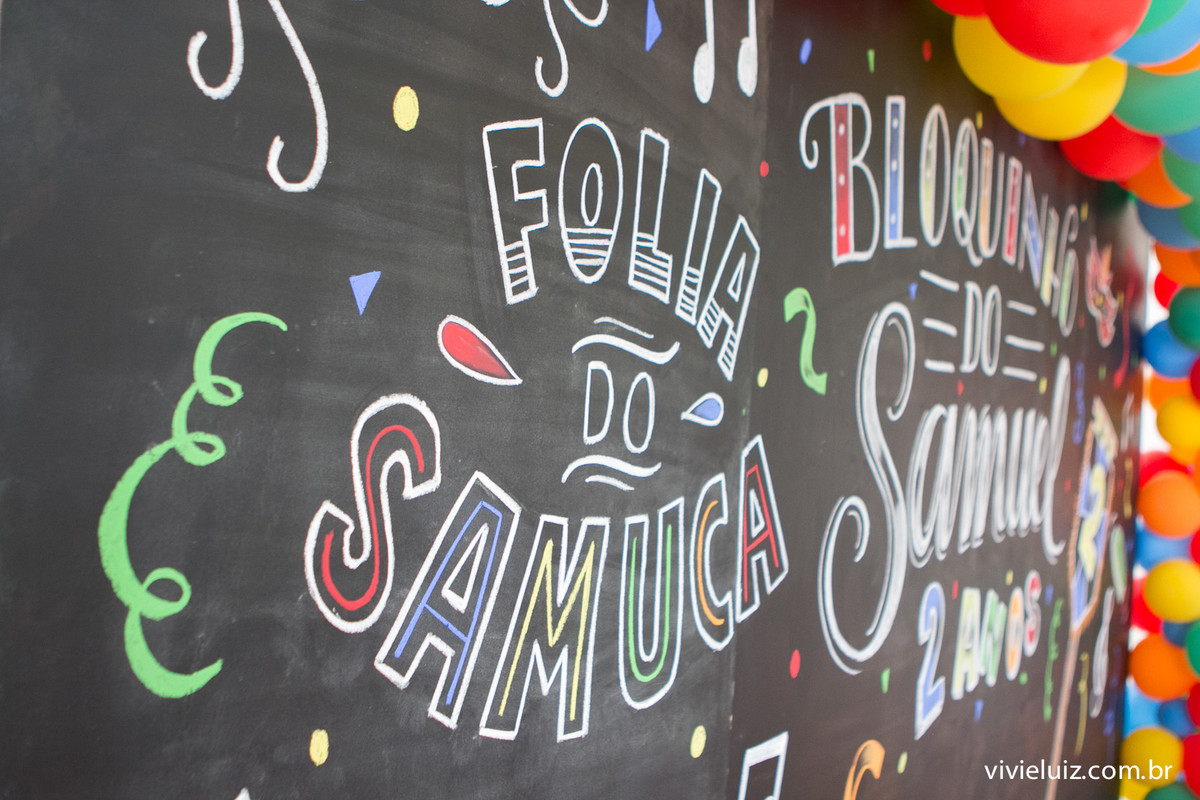 FOLIA
DO
SAMUCA
BLOQUINHO
DO
Samuel
2 ANOS
vivieluiz.com.br